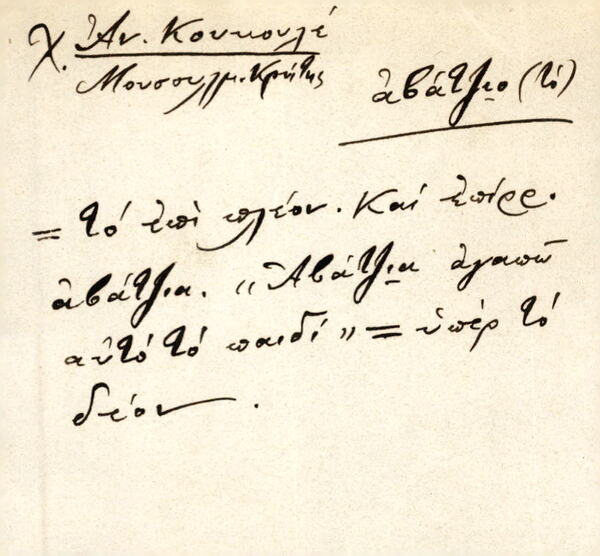 Χ. Ἀν. Κουκουλέ
Μουσουλμ. Κρήτης
ἀβάτζ̌ιο (τό)
= τό ἐπὶ πλέον. Καί ἐπίρρ.
ἀβάτζ̌ια. «Ἀβάτζ̌ια ἀγαπῶ
αὐτό τό παιδί» = ὑπέρ τό
δέον.